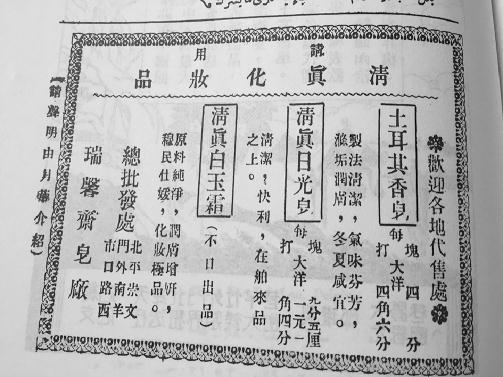 請用
清真化妝品
歡迎各地代售處
土耳其香皂 每 塊 四分
打 大洋 四角六分
製法清潔，氣味芬芳，
滌垢潤膚，冬夏咸宜。
清真日光皂 每 塊 九分五厘
打 大洋 一元一角四分
清潔，快利，在舶來品
之上。
清真白玉霜 （不日出品）
原料純淨，潤膚增妍，
穆民仕媛，化妝極品。
總批發處 北平崇文
門外南羊
市口路西
瑞馨齋皂廠
【請聲明由月華介紹】